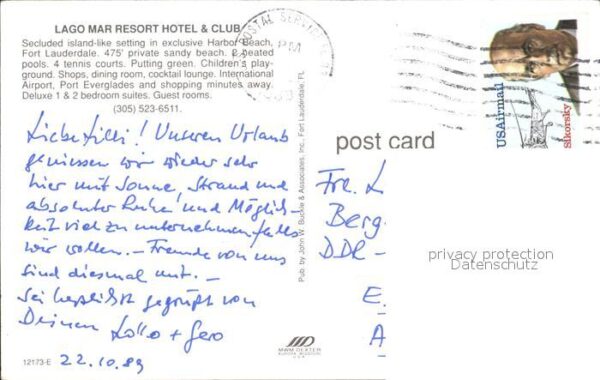 LAGO MAR RESORT HOTEL & CLUB
Secluded island-like setting in exclusive Harbor Beach,
Fort Lauderdale. 475' private sandy beach. 2 heated
pools. 4 tennis courts. Putting green. Children's play-
ground. Shops, dining room, cocktail lounge. International
Airport, Port Everglades and shopping minutes away.
Deluxe 1 & 2 bedroom suites. Guest rooms.
(305) 523-6511.
Liebe Lilli! Unseren Urlaub
geniessen wir wieder sehr
hier mit Sonne, Strand und
absoluter Ruhe und Möglich-
keit viel zu unternehmen falls
wir wollen. – Freunde von uns
sind diesmal mit. –
Sei herzlichst gegrüßt von
Deinen Lollo + Gero
22.10.89
12173-E
MWM DEXTER
AURORA, MISSOURI
U.S.A.
Pub. by John W. Buckle & Associates, Inc., Fort Lauderdale, FL
POSTAL SERVICE
PM
USAirmail
Sikorsky
post card
Fr. L
Berg
DDR –
E
A
privacy protection
Datenschutz